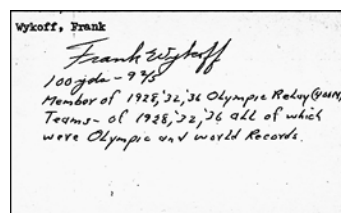 Wykoff, Frank
Frank Wykoff
100 yds - 9 2/5
Member of 1928, '32, '36 Olympic Relay (400M)
Teams - of 1928, '32, '36 all of which
were Olympic and world Records.